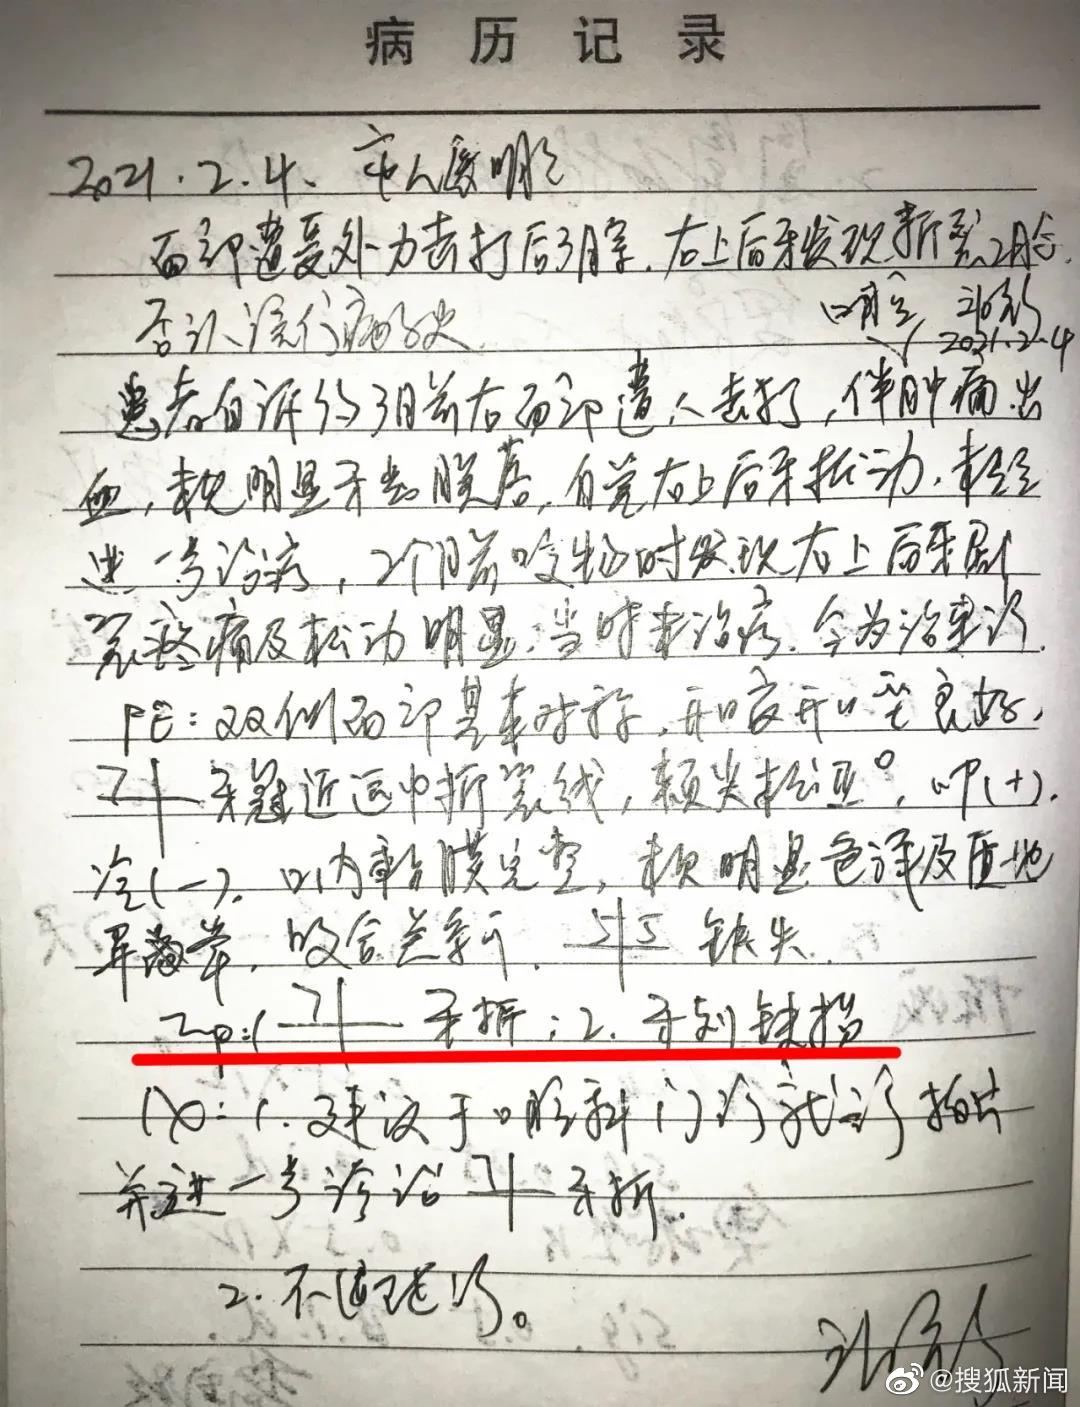 病历记录
2021.2.4.
面部遭受外力击打后3月余.右上后牙发现折裂2月余.
否认 病史
2021.2.4
患者自诉约3月前右面部遭人击打,伴肿痛出
血,未见明显牙齿脱落,自觉右上后牙松动.未经
进一步诊疗,2个月前咬物时发现右上后牙劈
裂疼痛及松动明显.当时未治疗.今为治来诊.
PE:双侧面部基本对称,开口度开口型良好,
7 牙冠近远中折裂线,颊尖松Ⅲ°,叩(+).
冷(-).口内黏膜完整,未见明显色泽及质地
异常. 5 5 缺失.
Imp:1. 7 牙折;2.牙列缺损
Rx:1.建议于口腔科门诊就诊拍片
并进一步诊治 7 牙折.
2.不适随诊。
@搜狐新闻